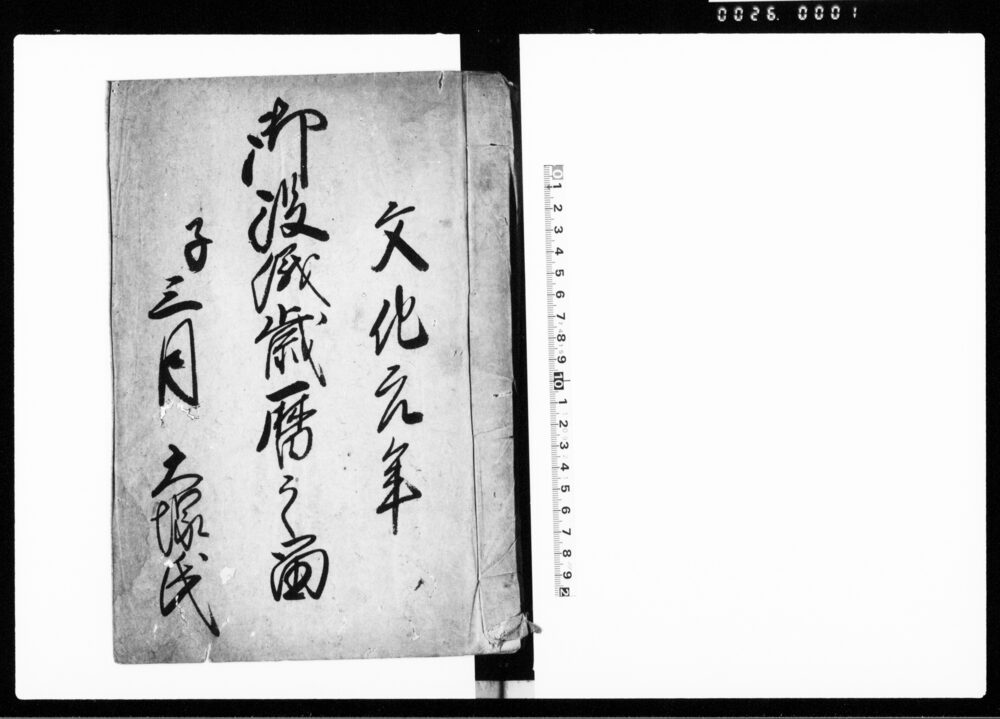 0026. 0001
文化元年
御歳暦之
子三月 大塚氏
0 1 2 3 4 5 6 7 8 9 10 1 2 3 4 5 6 7 8 9 2